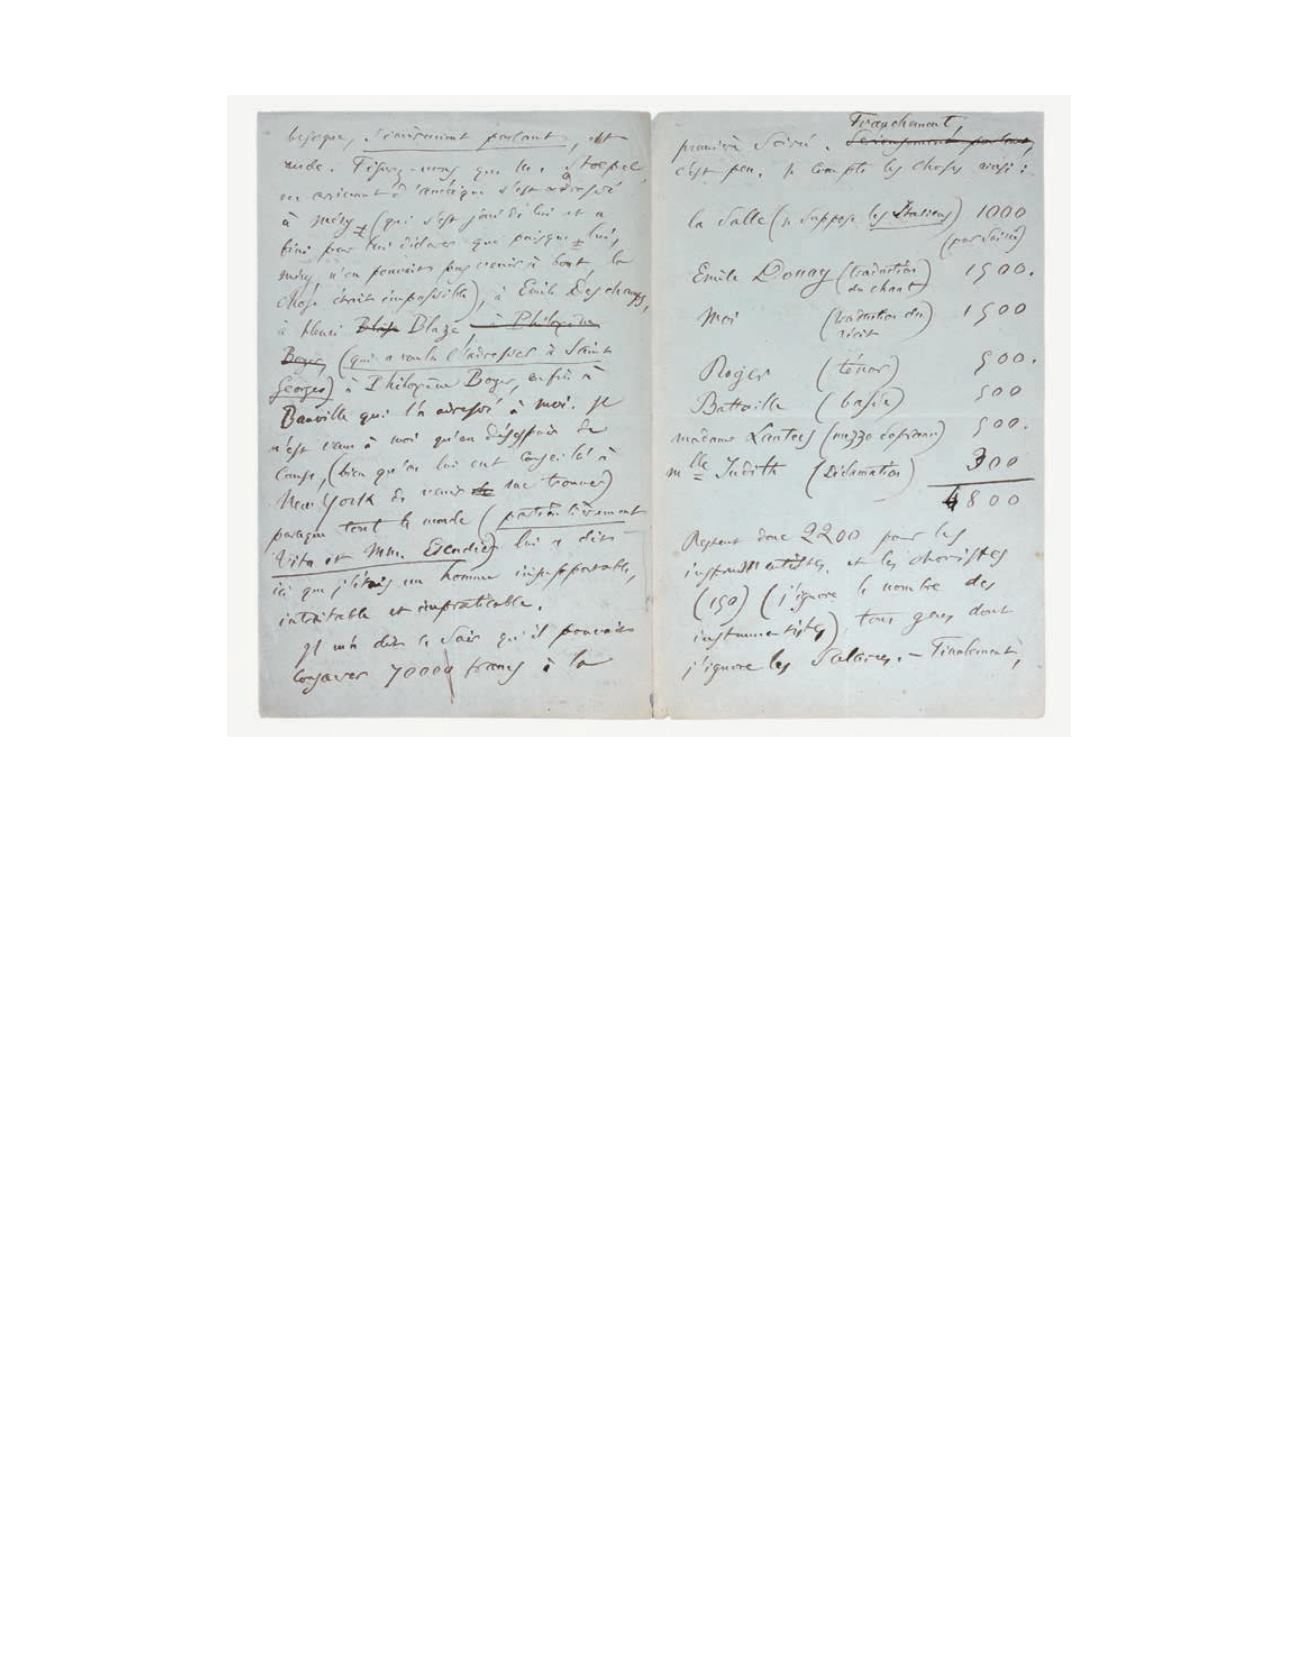 besogne, sincèrement parlant, est
rude. Figurez-vous que M. Stoepel,
en arrivant d'Amérique s'est adressé
à Méry (qui s'est joué de lui et a
fini par lui déclarer que puisque lui,
Méry n'en pouvait pas venir à bout, la
chose était impossible), à Emile Deschamps,
à Henri Blaze Blaze, à Philoxène
Boyer, (qui a voulu l'adresser à Saint
Georges) à Philoxène Boyer, enfin à
Banville qui l'a adressé à moi. Il
n'est venu à moi qu'en désespoir de
cause, (bien qu'on lui eut conseillé à
New York de venir me trouver)
parceque tout le monde (particulièrement
Vitu et MM. Escudier) lui a dit
ici que j'étais un homme insupportable,
intraitable et impraticable.
Il m'a dit ce soir qu'il pouvait
consacrer 70000 francs à la
Franchement,
première soirée. Sérieusement parlant,
c'est peu. Je compte les choses ainsi :
la Salle (je suppose les Italiens) 1000
(par soirée)
Emile Douay (traduction 1500.
du chant)
Moi (traduction du 1500
récit)
Roger (ténor) 500.
Battaille (basse) 500
madame Lauters (mezzo soprano) 500.
Mlle Judith (Déclamation) 300
4800
Restent donc 2200 pour les
instrumentistes, et les choristes
(150) (j'ignore le nombre des
instrumentistes), tous gens dont
j'ignore les Salaires. — Finalement,